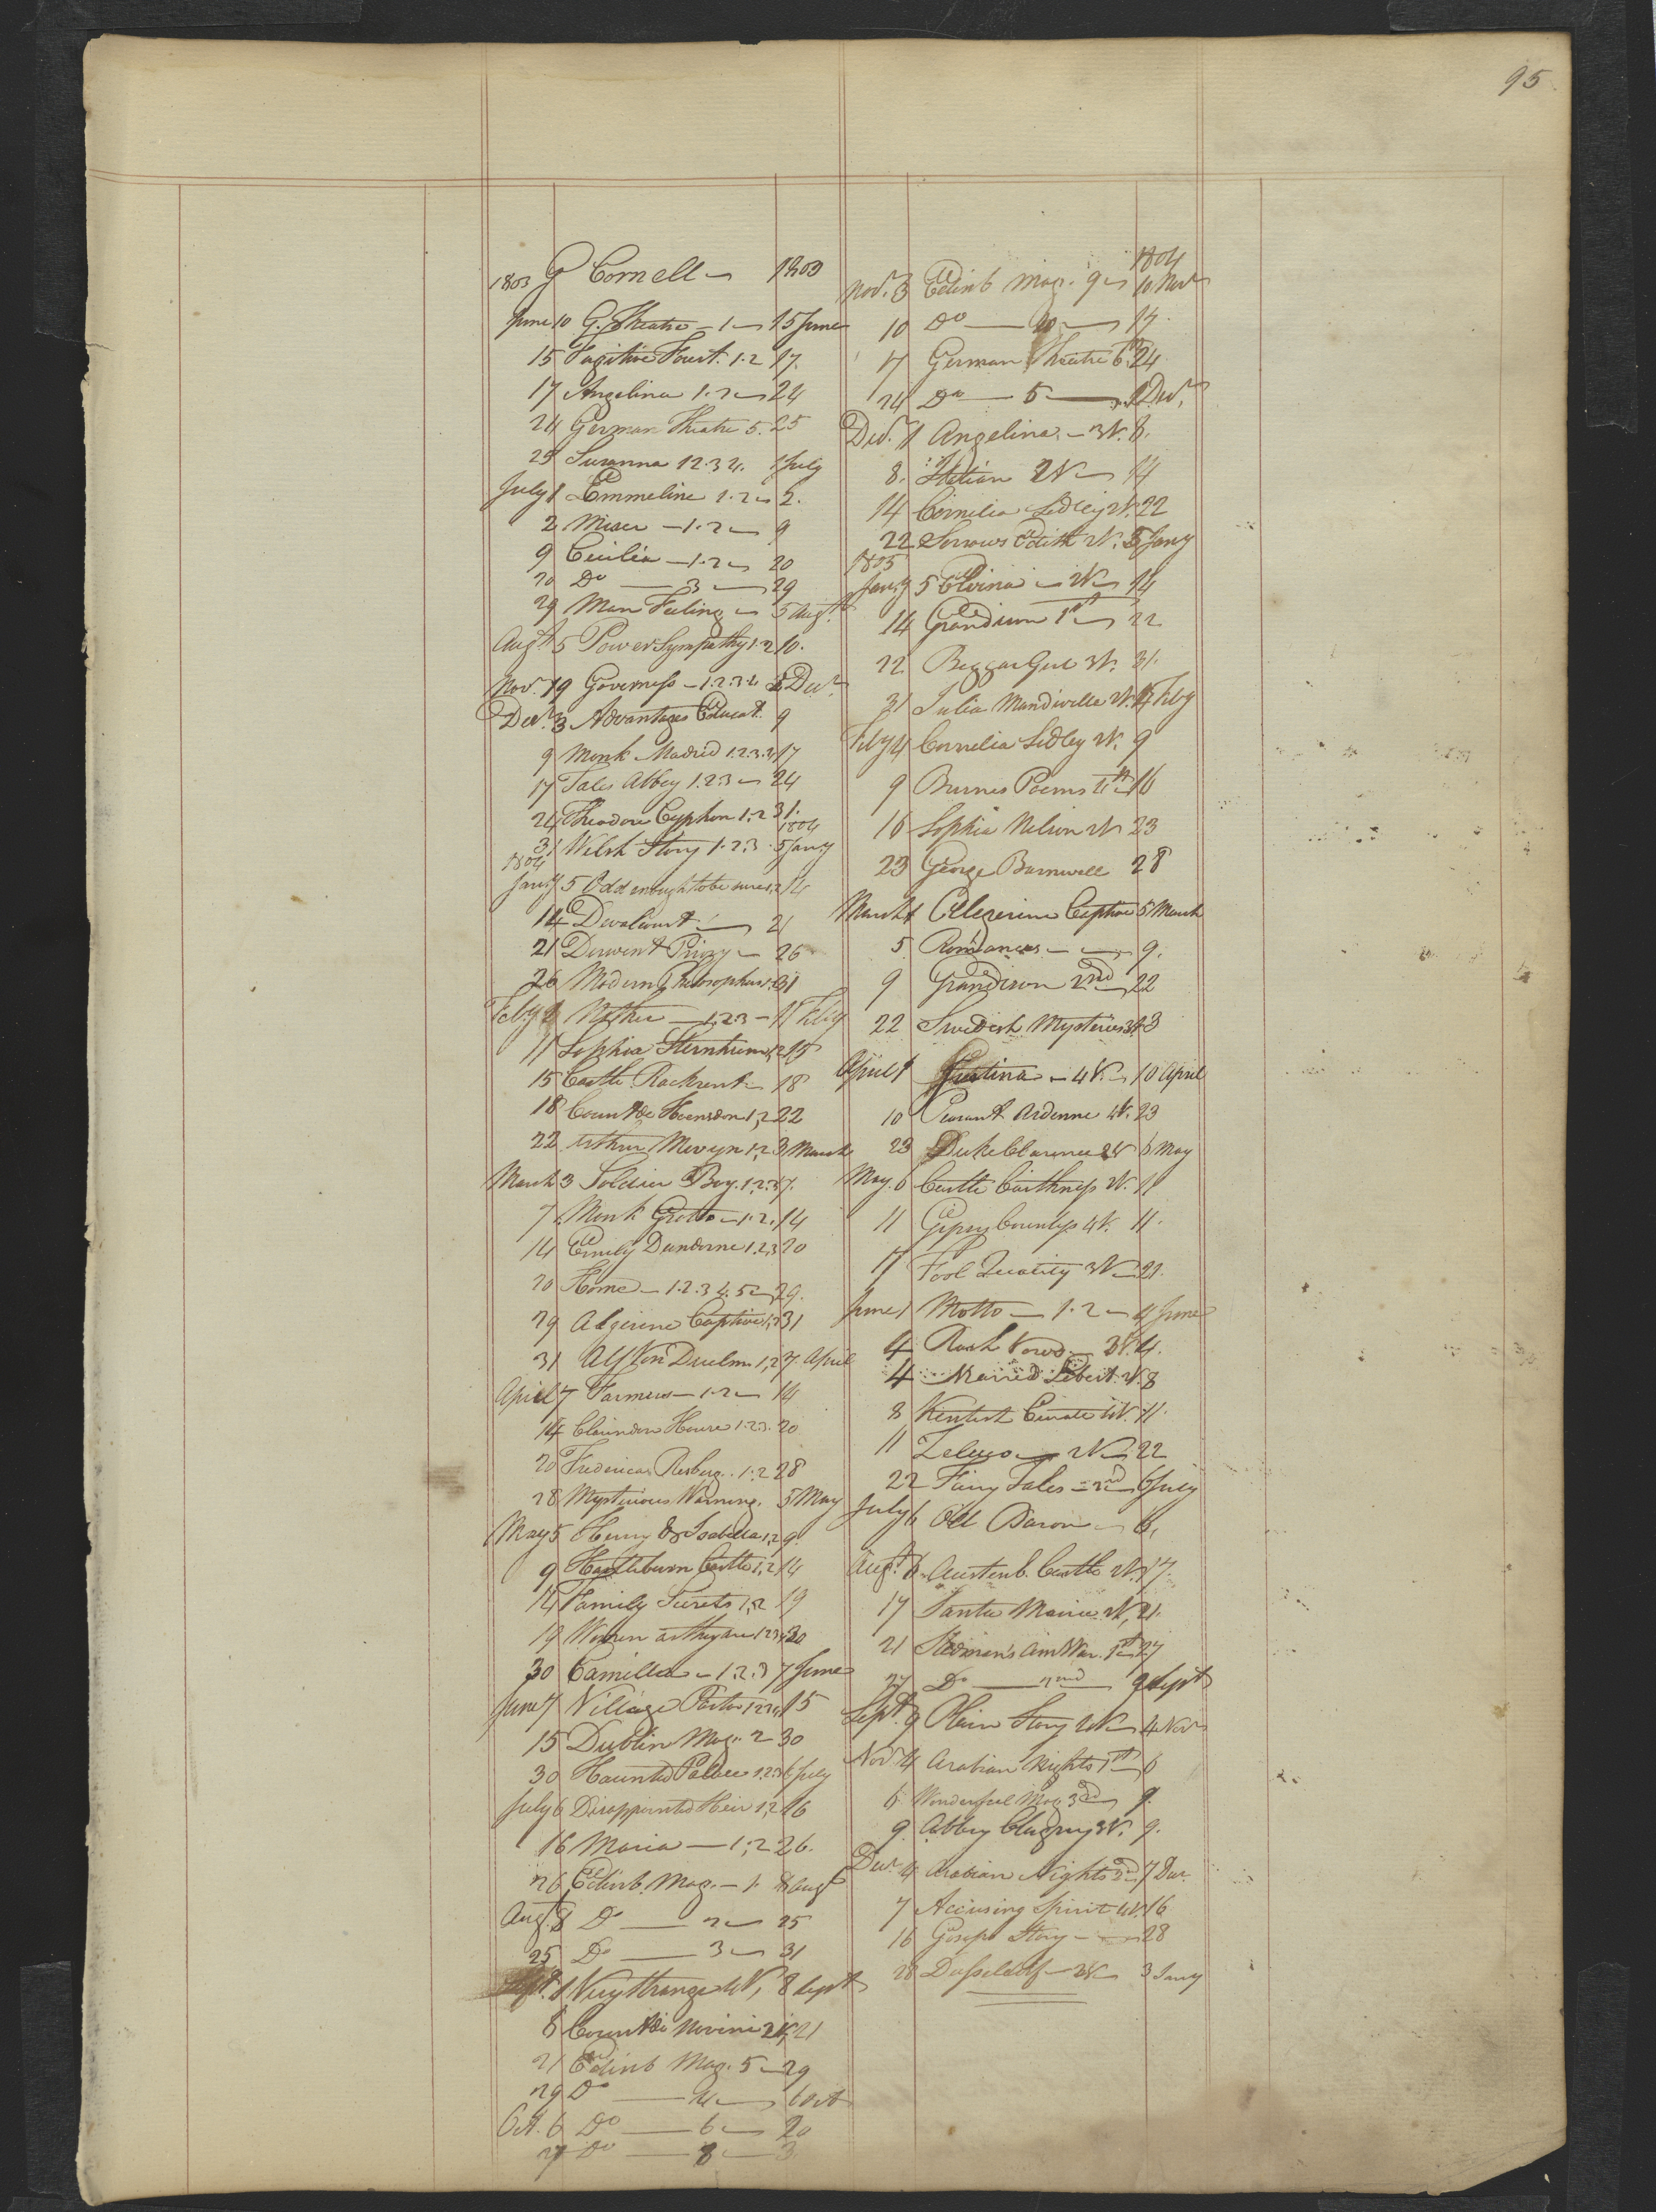 95
1803 G Cornell 1803
June 10 G. Theatre - 1 - 15 June
15 Fugitive Forest. 1.2 17.
17 Angelina 1.2 - 24
24 German Theatre 5. 25
25 Susanna 1 2.3 4. 1 July
July 1 Emmeline 1.2 - 2.
2 Miser - 1.2 - 9
9 Cecilia - 1.2 - 20
20 Do - 3 - 29
29 Man Feeling - 5 Augt.
Augt 5 Power Sympathy 1.2 10.
Nov. 19 Governess - 1.2.3 4 Decr.
Decr. 3 Advantages Educat. 9
9 Monk Madrid 1.2.3.4 17
17 Tales Abbey 1.2.3 - 24
24 Theodore Cyphon 1.2 31.
31 Welsh Story 1.2.3 1804 5 Jany
1804
Jany 5 Odd enough to be sure 1.2 14
14 Devalcourt - 21
21 Derwent Priory - 26
26 Modern Philosophers 31
Feby Mother - 1.2.3 - 11 Feby
11 Sophia Sternheim 1,2 15
15 Castle Rackrent - 18
18 Count de Hoensdon 1,2 22
22 Arthur Mervyn 1,2 3 March
March 3 Soldier Boy. 1.2.3 7.
7 Monk Grotto - 1.2. 14
14 Emily Dundorne 1.2,3 20
20 Home - 1.2.3 4.5 - 29.
29 Algerine Captive 1,2 31
31 Alf Von Duelm 1,2 7. April
April 7 Farmers - 1.2 - 14
14 Clarindon House 1.2.3. 20
20 Fredericas Risberg. 1.2 28
28 Mysterious Warning. 5 May
May 5 Henry & Isabella 1,2 9.
9 Hartlebourn Castle 1,2 14
14 Family Secrets 1,2 19
19 Women as they are 1 2 3 4 30
30 Camilla - 1.2.3 7 June
June 7 Village Pastor 1 2 15
15 Dublin Mag. 2 30
30 Haunted Palace 1.2.3 6 July
July 6 Disappointed Heir 1,2 16
16 Maria - 1,2 26.
26 Edinb. Mag. - 1. 8 Augt
Augt. 8 Do - 2 - 25
25 Do - 3 - 31
Sept. 1 Very Strange 4V, 8 Sept
8 Count di Novini 2V, 21
21 Edinb Mag. 5 - 29
29 Do - 4 - 6 Oct
Oct. 6 Do - 6 - 20
Do - 8 - 3
1804
Nov. 3 Edinb Mag. 9 - 10 Novr
10 Do - 10 - 17.
17 German Theatre 6th 24.
24 Do - 5 - 1 Decr.
Decr. 1 Angelina. - 3V. 8.
8. Italian 2V - 14
14 Cornelia Sedley 2V. 22
22 Sorrows Edith 2V. 5 Jany
1805
Jany 5 Elvina - 2V - 14
14 Grandison 1st - 22
22 Beggar Girl 3V. 31.
31 Julia Mandiville 2V. 4 Feby
Feby 4 Cornelia Sedley 2V. 9
9 Burnes Poems 16
16 Sophia Nelson 2V 23
23 George Barnwell 28
March 1 Algerine Captive 5 March
5 Romances - 9.
9 Grandison 2nd 22
22 Swedish Mysteries 3V
April 1 Justina - 4V. - 10 April
10 Peasant Ardenne 4V. 23
23 Duke Clarence 2V 6 May
May. 6 Castle Caithness 2V. 11
11 Gipsy Countess 4V. 11.
17 Fool Quality 3V - 21.
June 1 Motto - 1.2 - 4 June
4 Rash Vows. - 3V. 4.
4 Married Libert. 2V. 8
8 Kentish Curate 4V. 11.
11 Zeluco - 2V - 22
22 Fairy Tales - 2nd 6 July
July 6 Old Baron - 6,
Augt. 6 Austenb. Castle 2V. 17.
17 Santa Maria 2V, 21.
21 Stedman's Am War. 1st 27
27 Do - 2nd 9 Sept
Sept. 9 Plain Story 4V - 4 Novr
Nov 4 Arabian Nights 1st 6
6 Wonderful Mag 3d 9.
9 Abbey Clugny 3V. 9.
Decr 4 Arabian Nights 2d 7 Decr.
7 Accusing Spirit 4V. 16
16 Gossips Story - 28
28 Dusseldorf - 2V 3 Jany